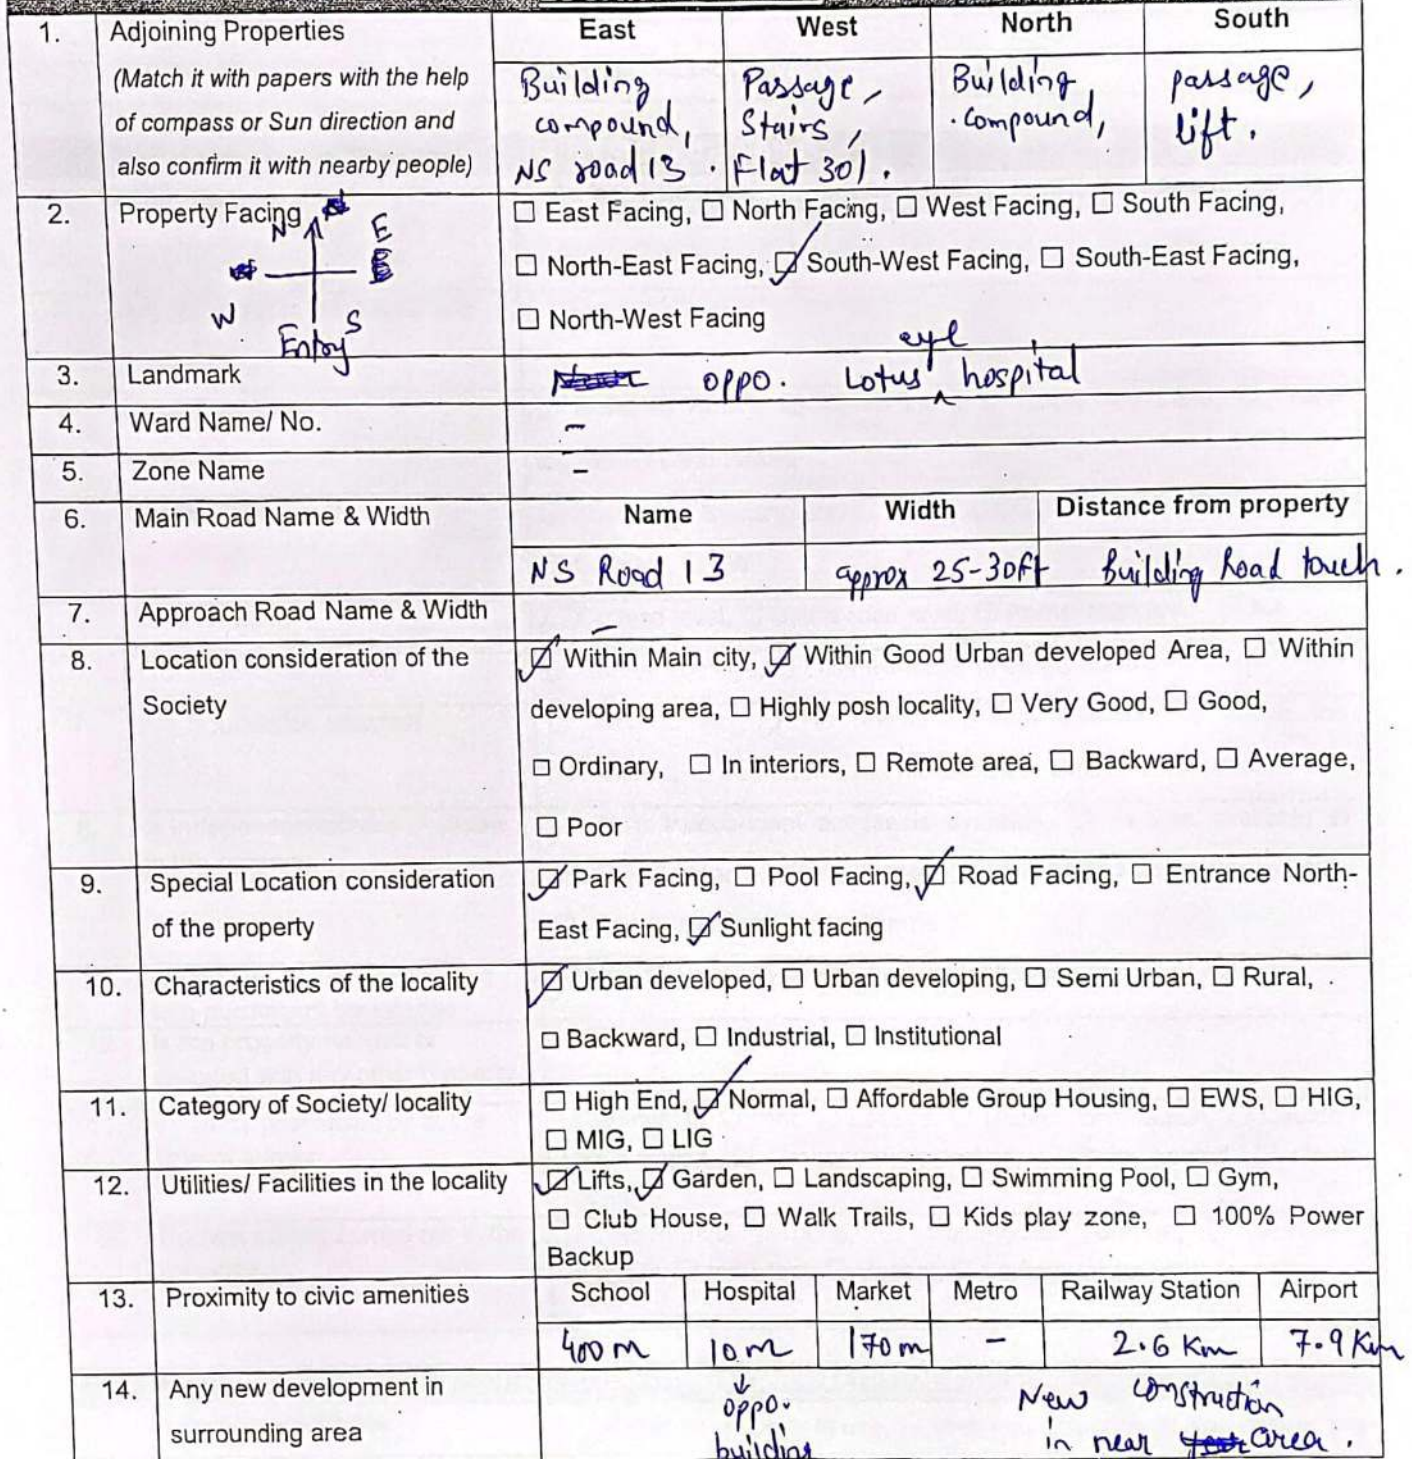 1. Adjoining Properties East West North South
(Match it with papers with the help
of compass or Sun direction and
also confirm it with nearby people)
Building
compound,
NS road 13.
Passage,
Stairs,
Flat 301.
Building
compound,
passage,
lift.
2. Property Facing
N
E
W
S
Entry
☐ East Facing, ☐ North Facing, ☐ West Facing, ☐ South Facing,
☐ North-East Facing, ☑ South-West Facing, ☐ South-East Facing,
☐ North-West Facing
3. Landmark oppo. Lotus eye hospital
4. Ward Name/ No. -
5. Zone Name -
6. Main Road Name & Width Name Width Distance from property
NS Road 13 approx 25-30ft Building Road touch.
7. Approach Road Name & Width -
8. Location consideration of the
Society
☑ Within Main city, ☑ Within Good Urban developed Area, ☐ Within
developing area, ☐ Highly posh locality, ☐ Very Good, ☐ Good,
☐ Ordinary, ☐ In interiors, ☐ Remote area, ☐ Backward, ☐ Average,
☐ Poor
9. Special Location consideration
of the property
☑ Park Facing, ☐ Pool Facing, ☑ Road Facing, ☐ Entrance North-
East Facing, ☑ Sunlight facing
10. Characteristics of the locality
☑ Urban developed, ☐ Urban developing, ☐ Semi Urban, ☐ Rural,
☐ Backward, ☐ Industrial, ☐ Institutional
11. Category of Society/ locality
☐ High End, ☑ Normal, ☐ Affordable Group Housing, ☐ EWS, ☐ HIG,
☐ MIG, ☐ LIG
12. Utilities/ Facilities in the locality
☑ Lifts, ☑ Garden, ☐ Landscaping, ☐ Swimming Pool, ☐ Gym,
☐ Club House, ☐ Walk Trails, ☐ Kids play zone, ☐ 100% Power
Backup
13. Proximity to civic amenities School Hospital Market Metro Railway Station Airport
400 m 10 m 170 m - 2.6 Km 7.9 Km
14. Any new development in
surrounding area
↓
oppo.
building
New construction
in near area.